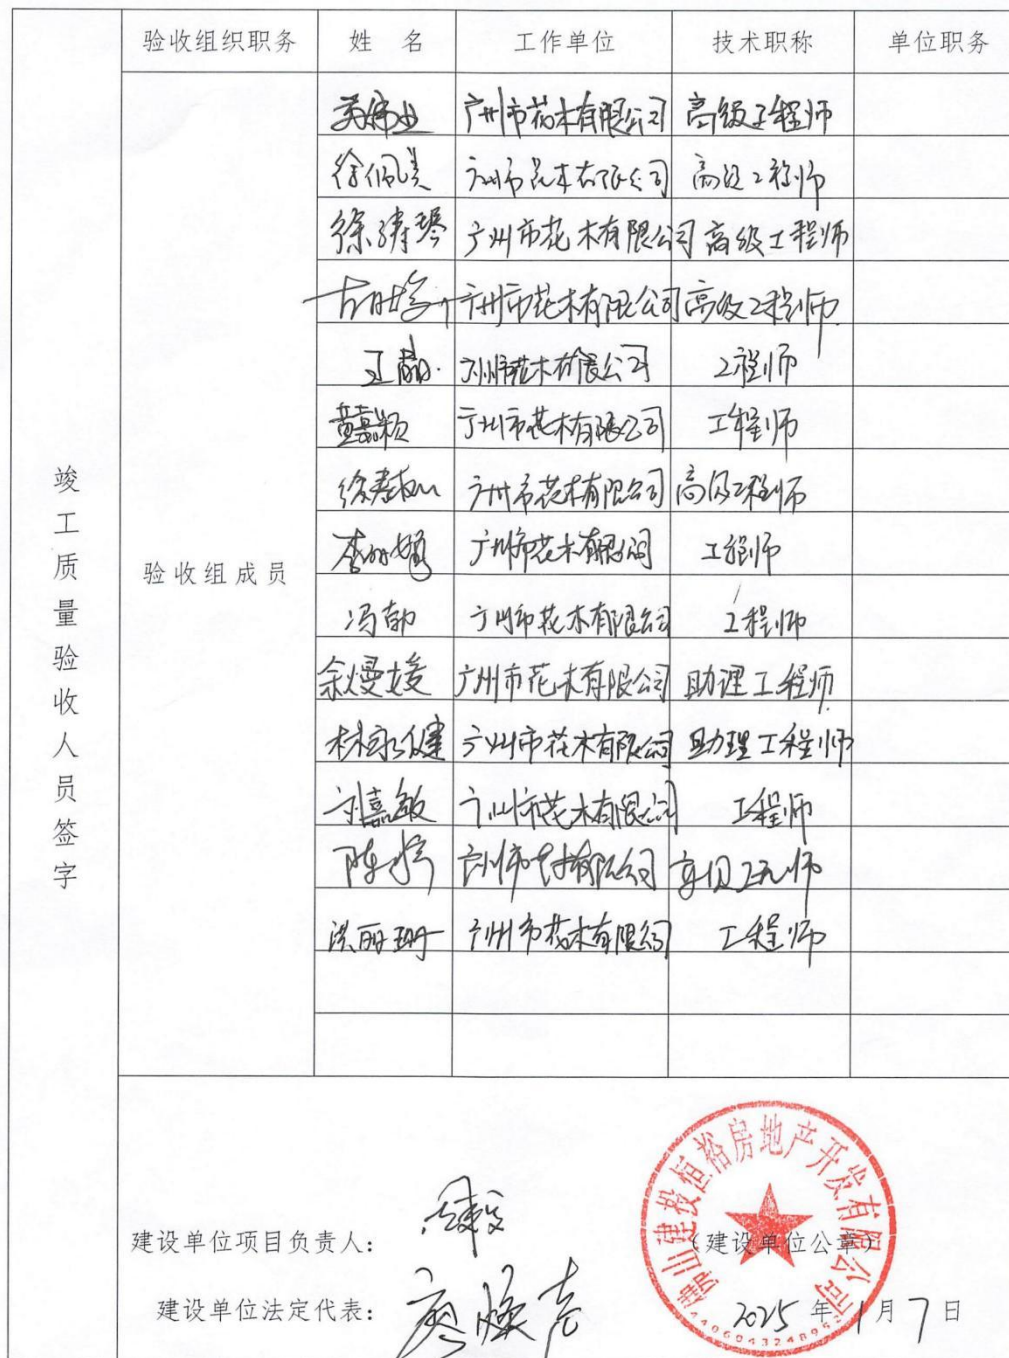 验收组织职务 姓 名 工作单位 技术职称 单位职务
竣工质量验收人员签字
验收组成员
广州市花木有限公司 高级工程师
徐佩 广州市花木有限公司 高级工程师
徐 琴 广州市花木有限公司 高级工程师
广州市花木有限公司 高级工程师
王 广州市花木有限公司 工程师
黄嘉颖 广州市花木有限公司 工程师
徐 广州市花木有限公司 高级工程师
李 广州市花木有限公司 工程师
冯 广州市花木有限公司 工程师
余熳媛 广州市花木有限公司 助理工程师
林永健 广州市花木有限公司 助理工程师
刘嘉敏 广州市花木有限公司 工程师
陈婷 广州市花木有限公司 高级工程师
洪丽珊 广州市花木有限公司 工程师
建设单位项目负责人:
(建设单位公章)
建设单位法定代表: 廖焕
2025 年 1 月 7 日
佛山建投恒裕房地产开发有限公司